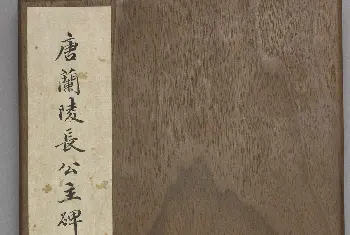 唐蘭陵長公主碑